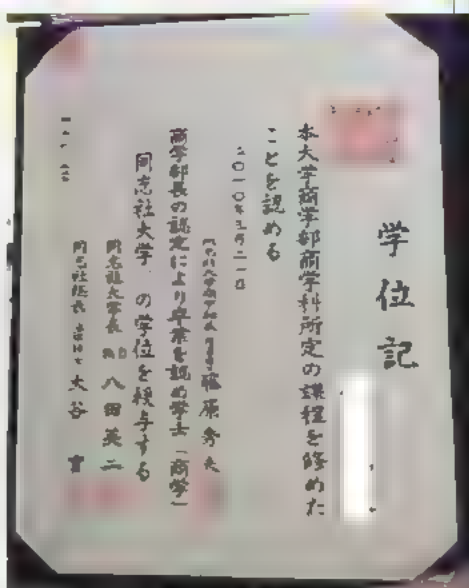 学位記
本大学商学部商学科所定の課程を修めた
ことを認める
二〇一〇年三月二一日
原秀夫
商学部長の認定により卒業を認め学士「商学」
同志社大学 の学位を授与する
同志社大学長 八田英二
同志社総長 大谷實